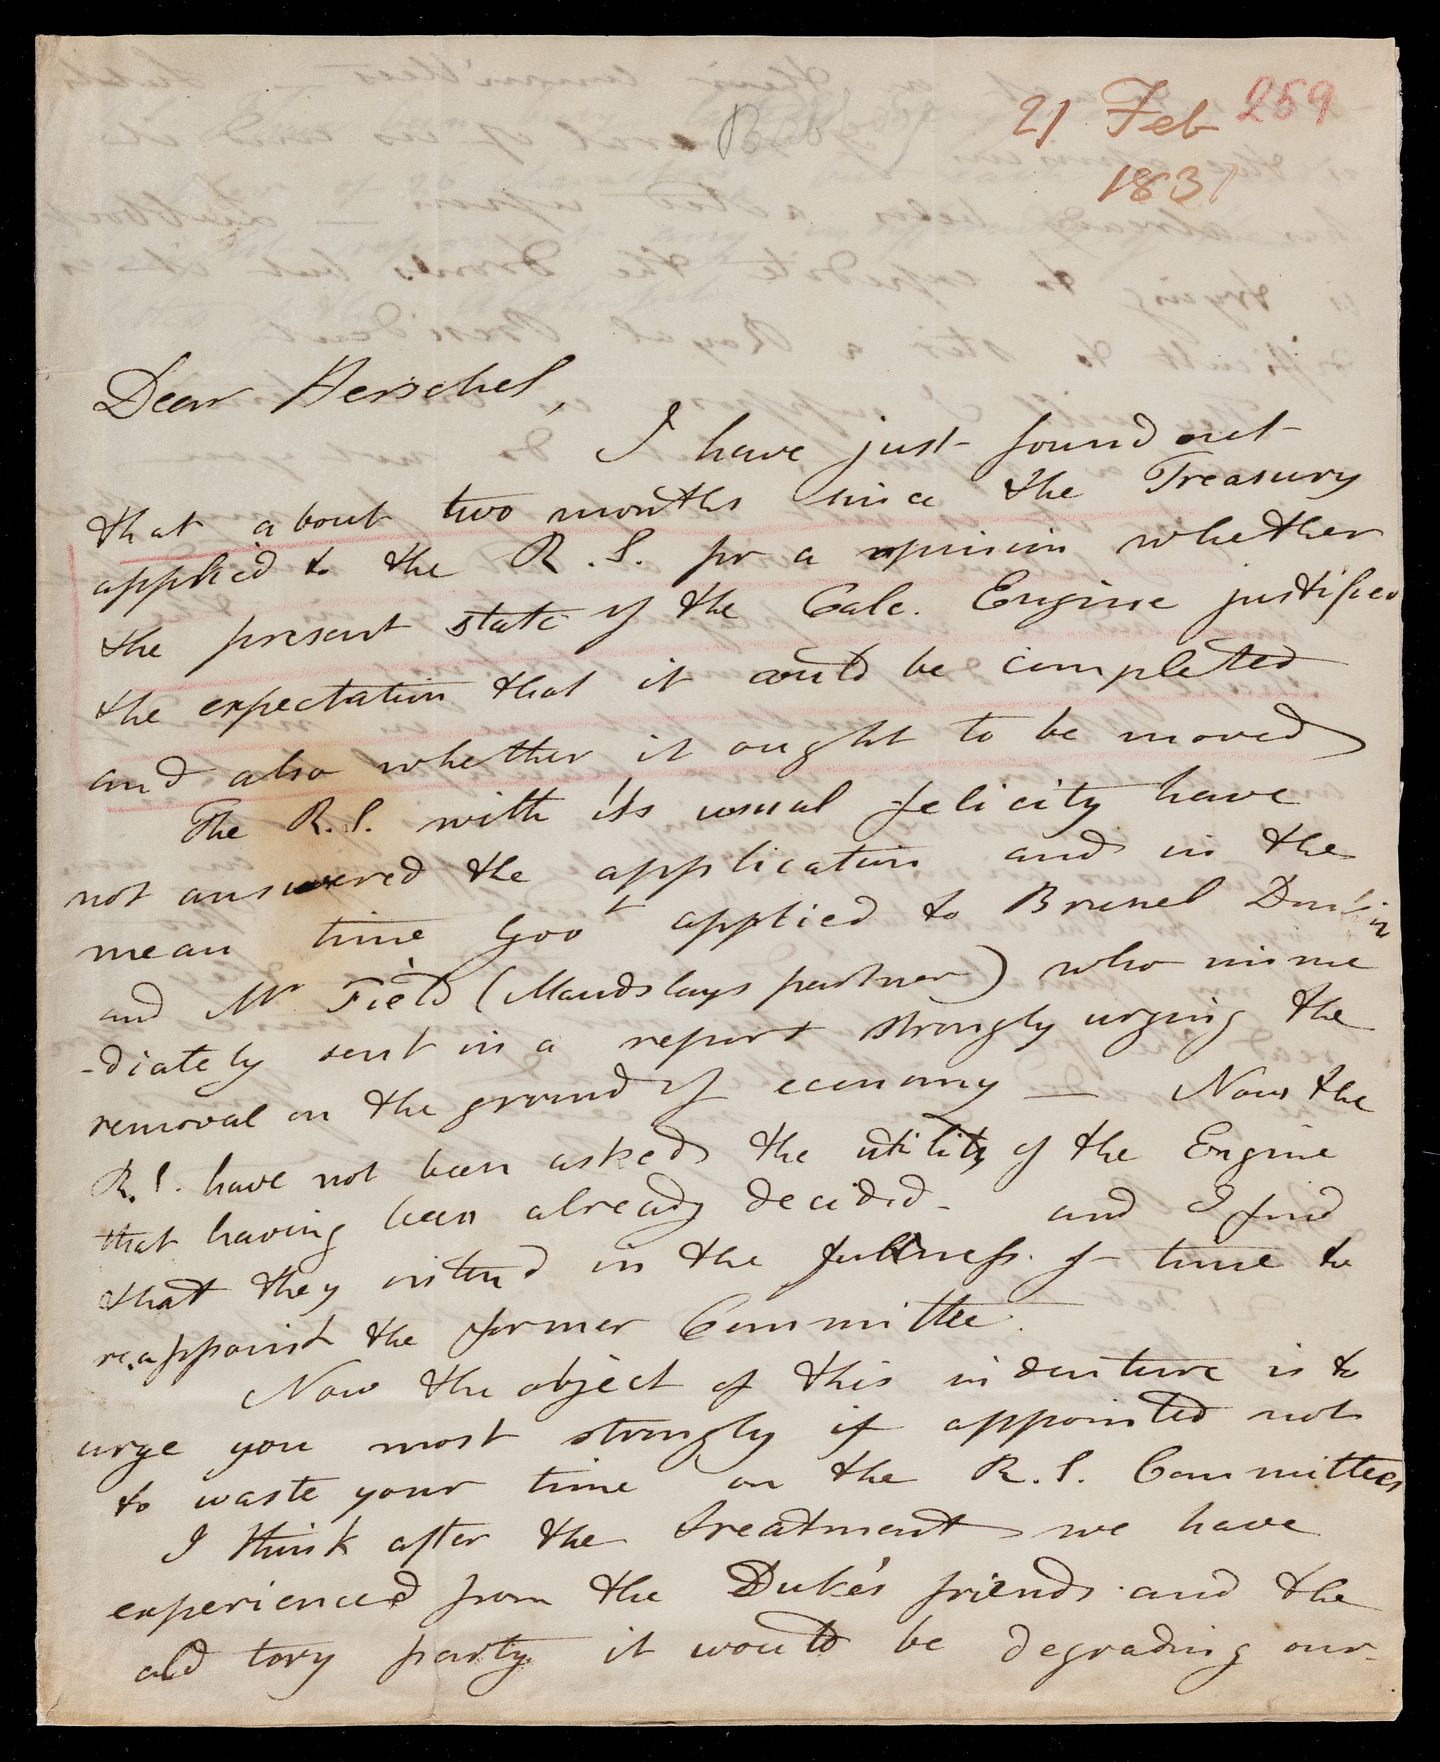 21 Feb 259
1831
Babbage
Dear Herschel,
I have just found out
that about two months since the Treasury
applied to the R.S. for a opinion whether
the present state of the Calc. Engine justified
the expectation that it could be completed
and also whether it ought to be moved
The R.S. with its usual felicity have
not answered the application and in the
mean time Govt applied to Brunel Donkin
and Mr Field (Maudslays partner) who imme
-diately sent in a report strongly urging the
removal on the ground of economy — Now the
R.S. have not been asked the utility of the Engine
that having been already decided - and I find
that they intend in the fullness of time to
reappoint the former Committee.
Now the object of this indenture is to
urge you most strongly if appointed not
to waste your time on the R.S. Committees
I think after the treatment we have
experienced from the Duke's friends and the
old tory party it would be degrading our-